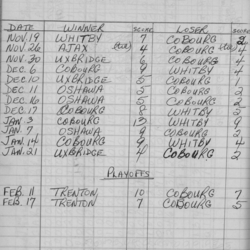 DATE WINNER SCORE LOSER SCORE
NOV 19 WHITBY 7 COBOURG 2
NOV 26 AJAX 4 COBOURG 4
NOV 30 UXBRIDGE 6 COBOURG
DEC. 6 COBOURG 7 WHITBY 4
DEC 10 UXBRIDGE 5 COBOURG
DEC 11 OSHAWA 5 COBOURG 2
DEC 16 OSHAWA 5 COBOURG 2
DEC. 17 COBOURG 8 WHITBY 2
JAN. 3 COBOURG 13 WHITBY 9
JAN. 7 OSHAWA 9 COBOURG
JAN. 14 COBOURG 9 WHITBY 4
JAN. 21 UXBRIDGE 4 COBOURG 2
PLAYOFFS
FEB. 11 TRENTON 10 COBOURG 7
FEB. 17 TRENTON 7 COBOURG 5